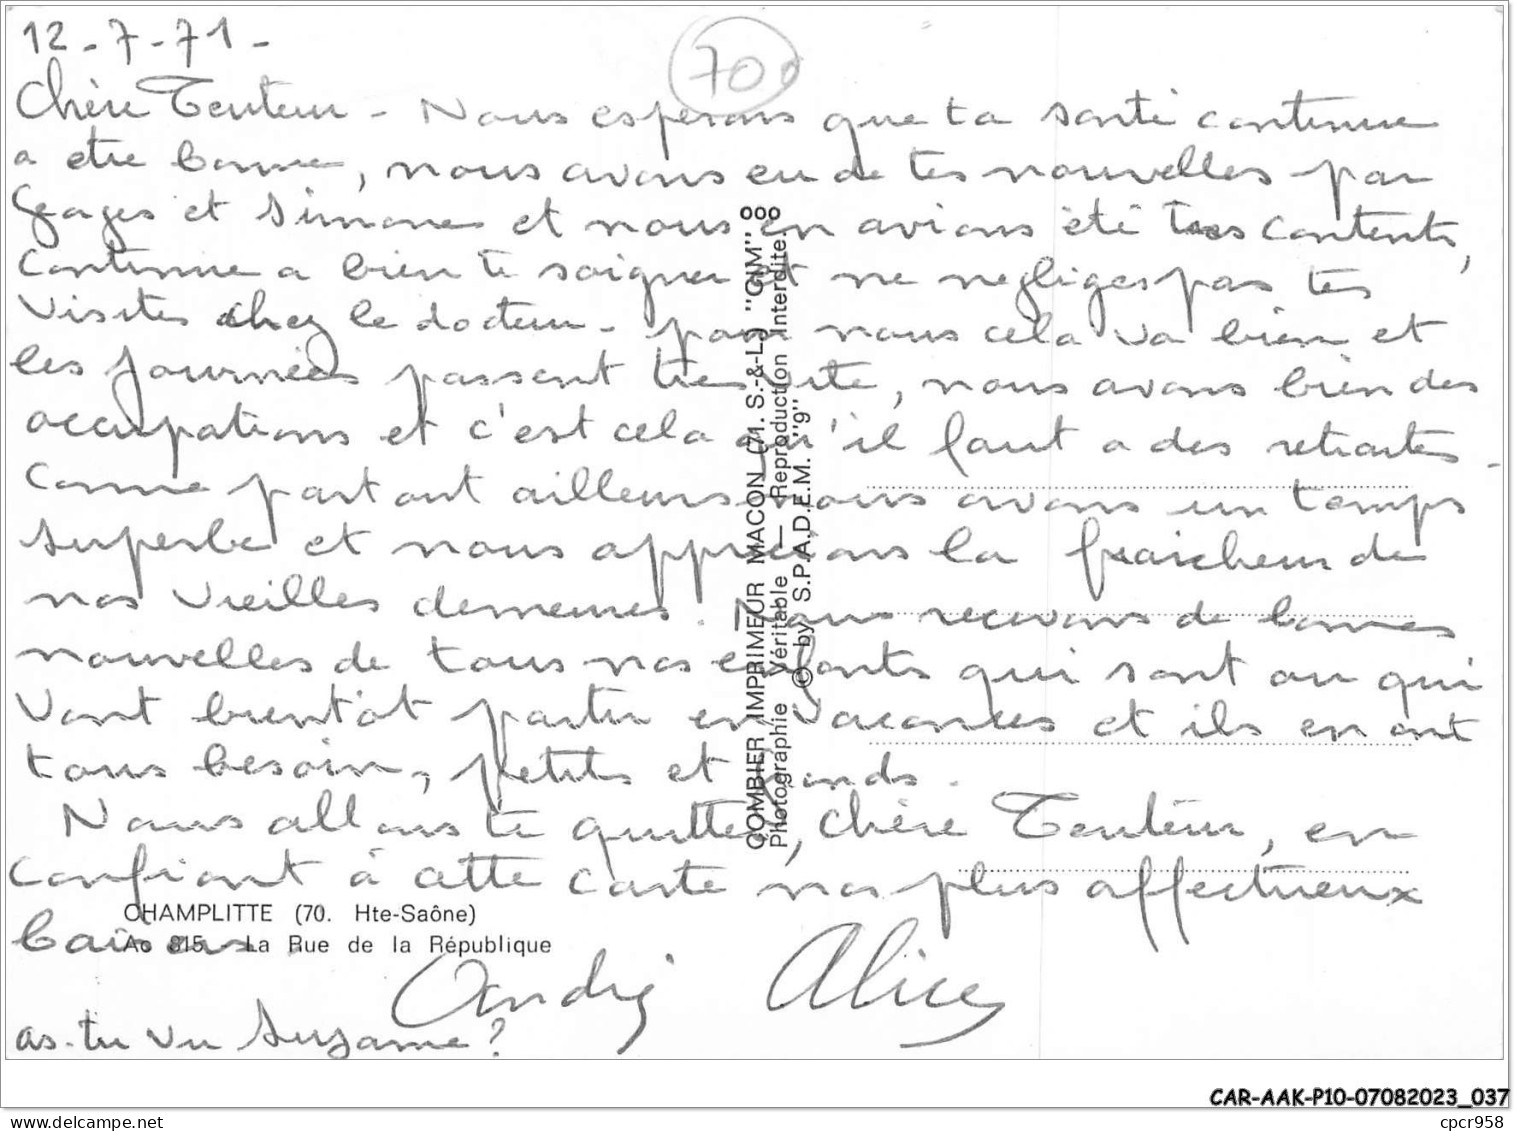 12-7-71-
70
Chère Tenteur - Nous esperons que ta santé continue
a etre bonne, nous avons eu de tes nouvelles par
Georges et Simone et nous en avions été tres contents,
Continue a bien te soigner et ne negliges pas tes
Visites chez le docteur - pour nous cela va bien et
les Journées passent tres vite, nous avons bien des
occupations et c'est cela qu'il faut a des retraités -
Comme partout ailleurs nous avons un temps
superbe et nous apprecions la fraicheur de
nos vieilles demeures. Nous recevons de bonnes
nouvelles de tous nos enfants qui sont ou qui
Vont bientôt partir en vacances et ils en ont
tous besoin, petits et grands.
Nous allons te quitter, chère Tenteur, en
Confiant à cette carte nos plus affectueux
baisers
CHAMPLITTE (70. Hte-Saône)
Ac 815. La Rue de la République
André Alice
as-tu vu Suzanne ?
COMBIER IMPRIMEUR MACON (71. S.-&-L.) "CIM"
Photographie Véritable — Reproduction Interdite
© by S.P.A.D.E.M. "9"
CAR-AAK-P10-07082023_037
delcampe.net
cpcr958